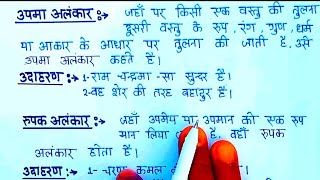 उपमा अलंकार :- जहाँ पर किसी एक वस्तु की तुलना
दूसरी वस्तु के रूप, रंग, गुण, धर्म
या आकार के आधार पर तुलना की जाती है, उसे
उपमा अलंकार कहते है।
उदाहरण :- 1- राम चन्द्रमा-सा सुन्दर है।
2- वह शेर की तरह बहादुर है।
रूपक अलंकार :- जहाँ उपमेय या उपमान को एक रूप
मान लिया है, वहाँ रूपक
अलंकार होता है।
उदाहरण :- 1- चरण कमल